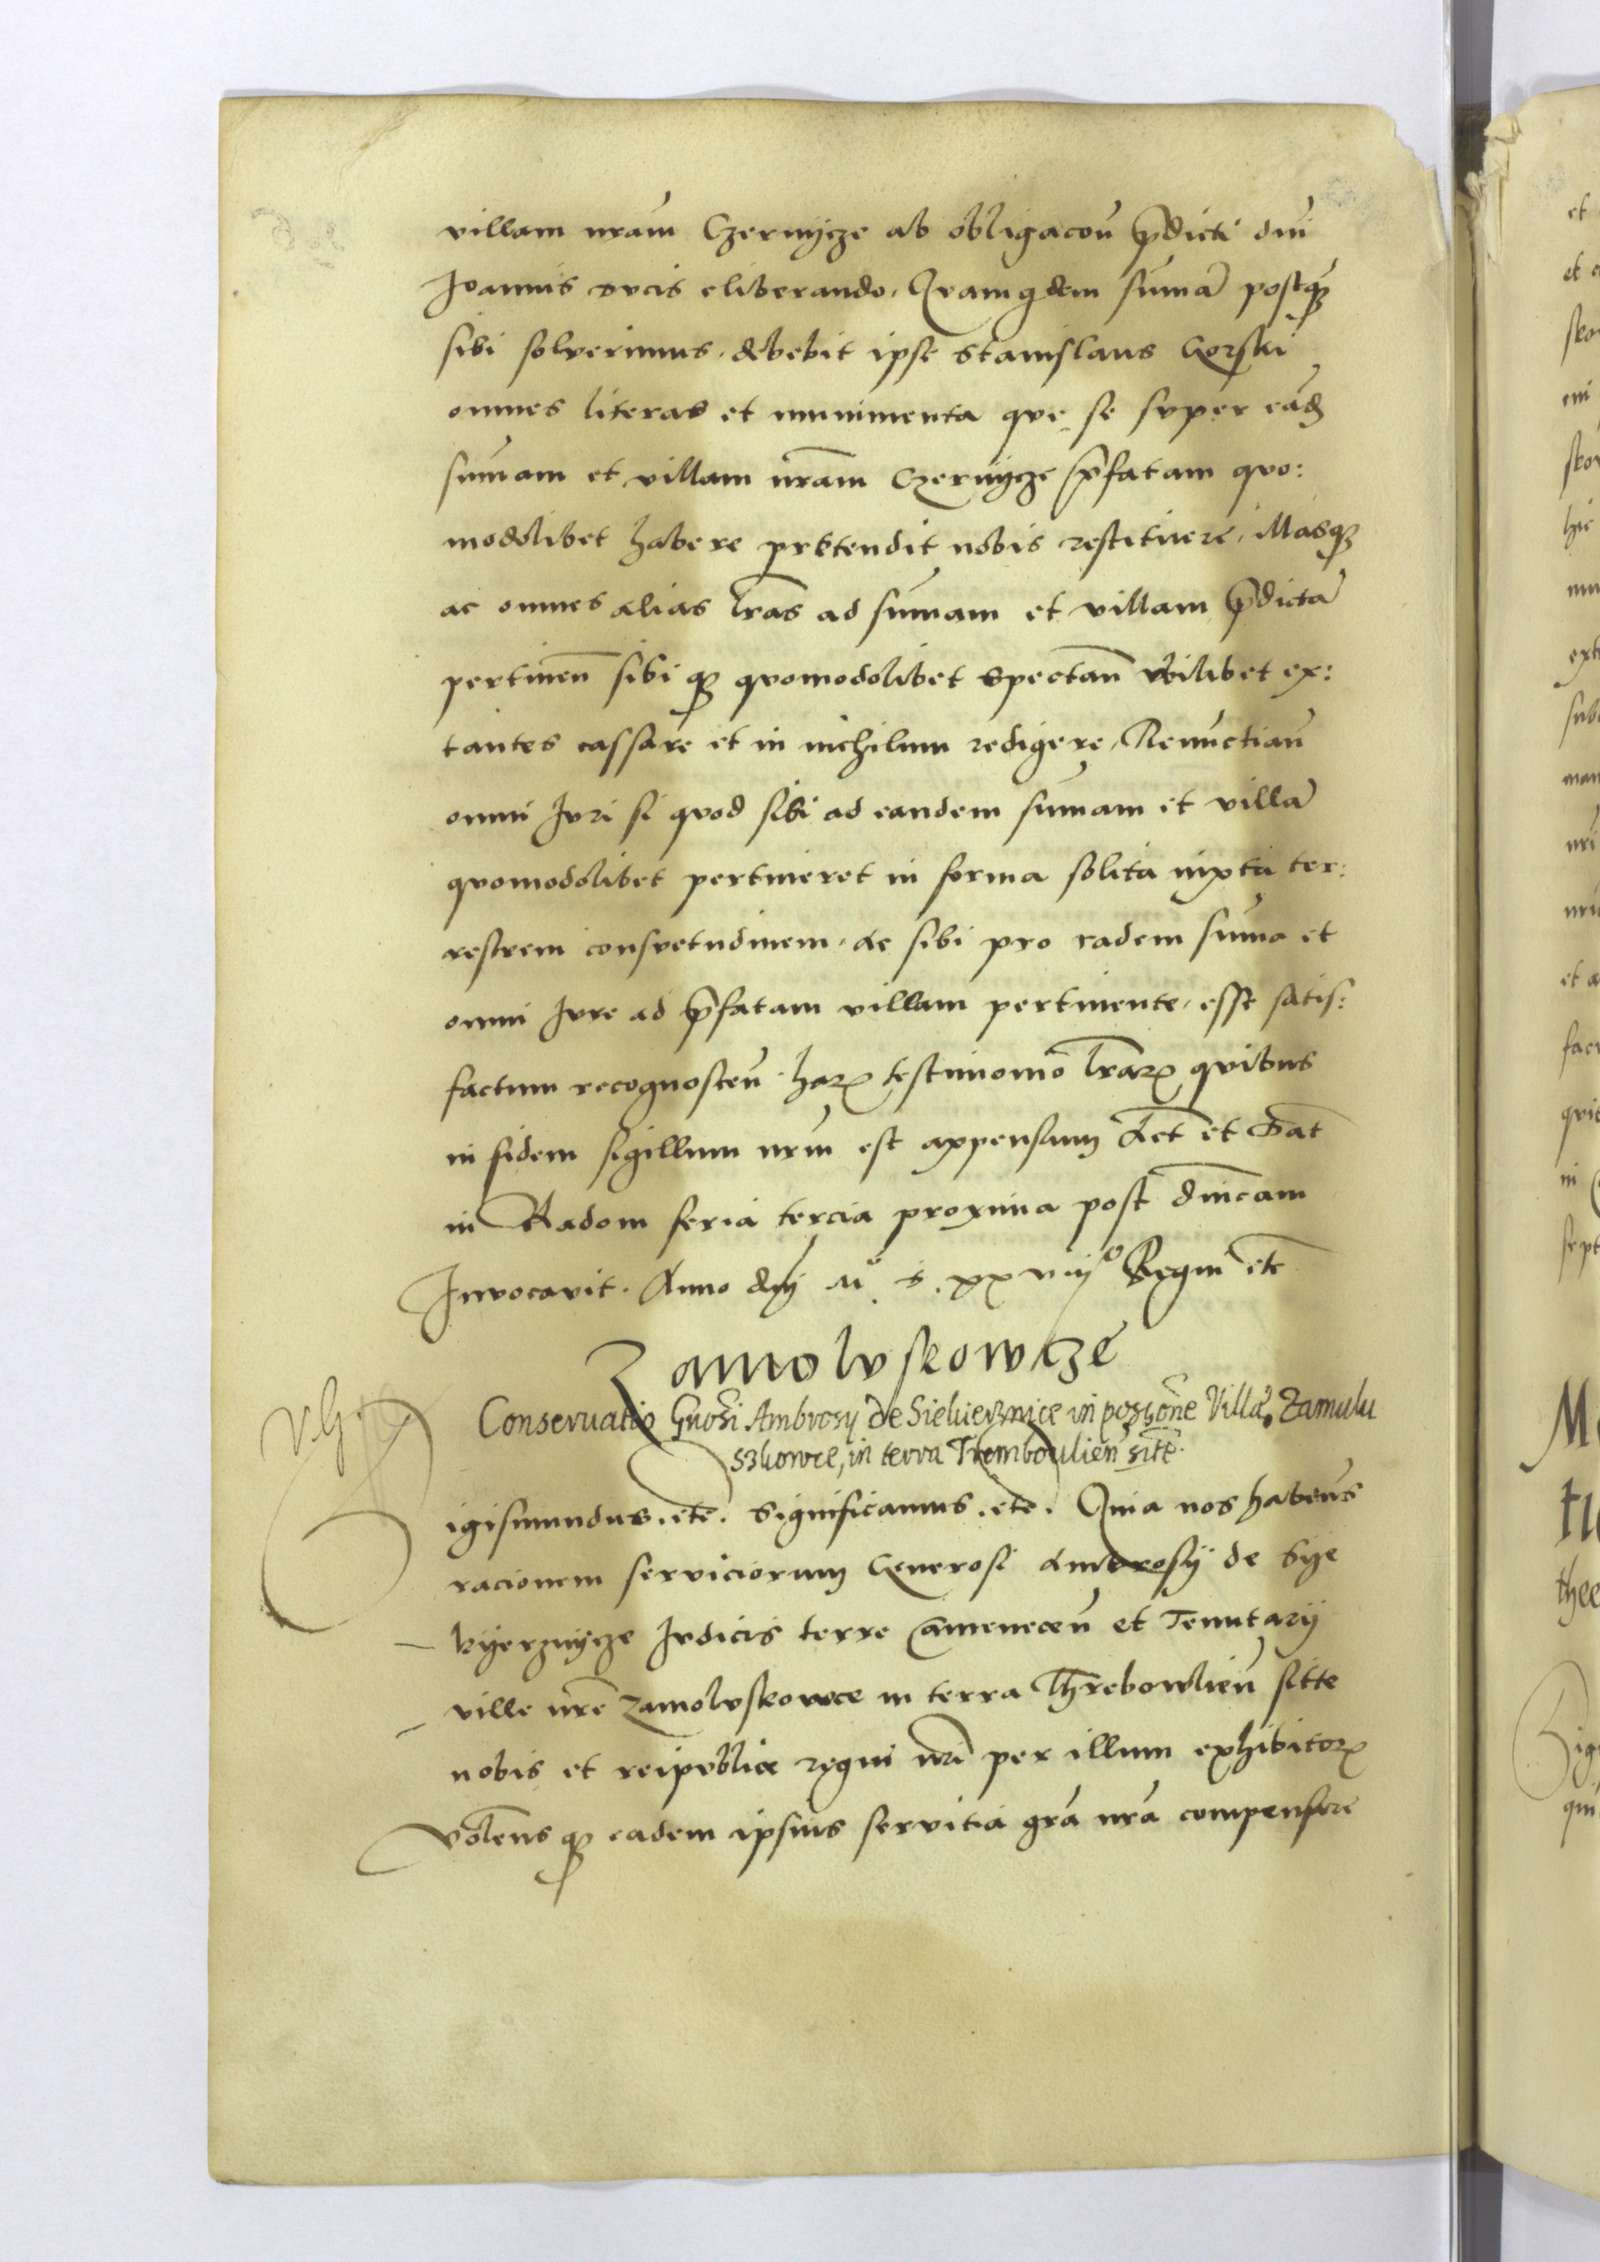 villam nram Czernycze ab obligacoe pdicti dni
Joannis ducis eliberando. Quamqdem sumam postq
sibi solverimus, debebit ipse Stanislaus Gorski
omnes literas et munimenta que se super eadem
summam et villam nram Czernycze pfatam quo:
modolibet habere pretendit nobis restituere, illasq
ac omnes alias lras ad summam et villam pdictam
pertinen sibi q quomodolibet spectan ubilibet ex:
tantes cassare et in nichilum redigere, Renunctian
omni Juri si quod sibi ad eandem summam et villam
quomodolibet pertineret in forma solita iuxta ter:
restrem consuetudinem, ac sibi pro eadem summa et
omni Jure ad pfatam villam pertinente, esse satis:
factum recognoscen. harum testimonio lrarum quibus
in fidem sigillum nrum est appensum Act et Dat
in Radom feria tercia proxima post dnicam
Invocavit. Anno dni Mº. d. xxviijº Regni etc
Zamoluskowcze
Conservatio Gnosi Ambrosij de Siekierznice in possione Villae Zamulu
szkowce, in terra Trembowlien site
igismundus. etc. Significamus. etc. Quia nos habens
racionem serviciorum Generosi Ambrosij de Sye
kyerznycze Judicis terre Camenecen et Tenutarij
ville nre Zamoluskowce in terra Threbowlien sitte
nobis et reipublice regni nri per illum exhibitorum
Volens q eadem ipsius servitia gra nra compensare